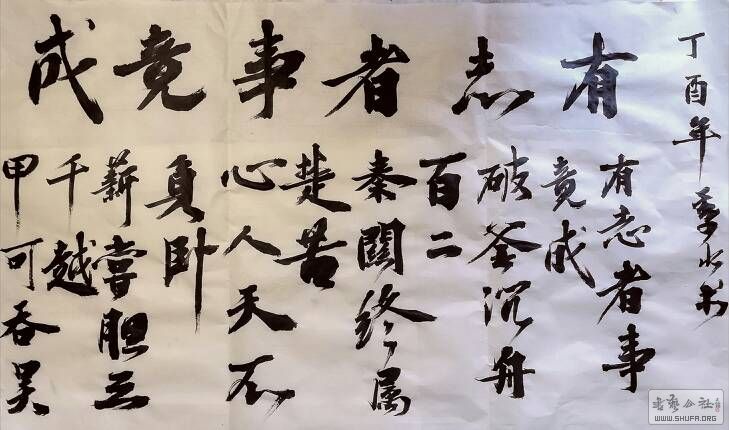 有志者事竟成
丁酉年水书
有志者事
竟成
破釜沉舟
百二
秦關終属
楚苦
心人天不
負卧
薪嘗胆三
千越
甲可吞吴
书艺公社
WWW.SHUFA.ORG